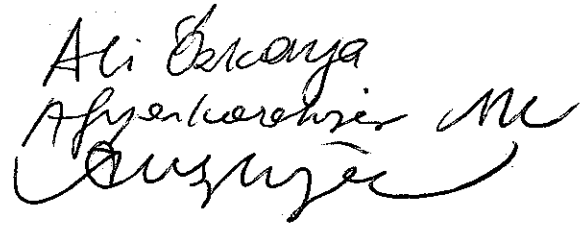 Ali Özkaya
Afyonkarahisar MV